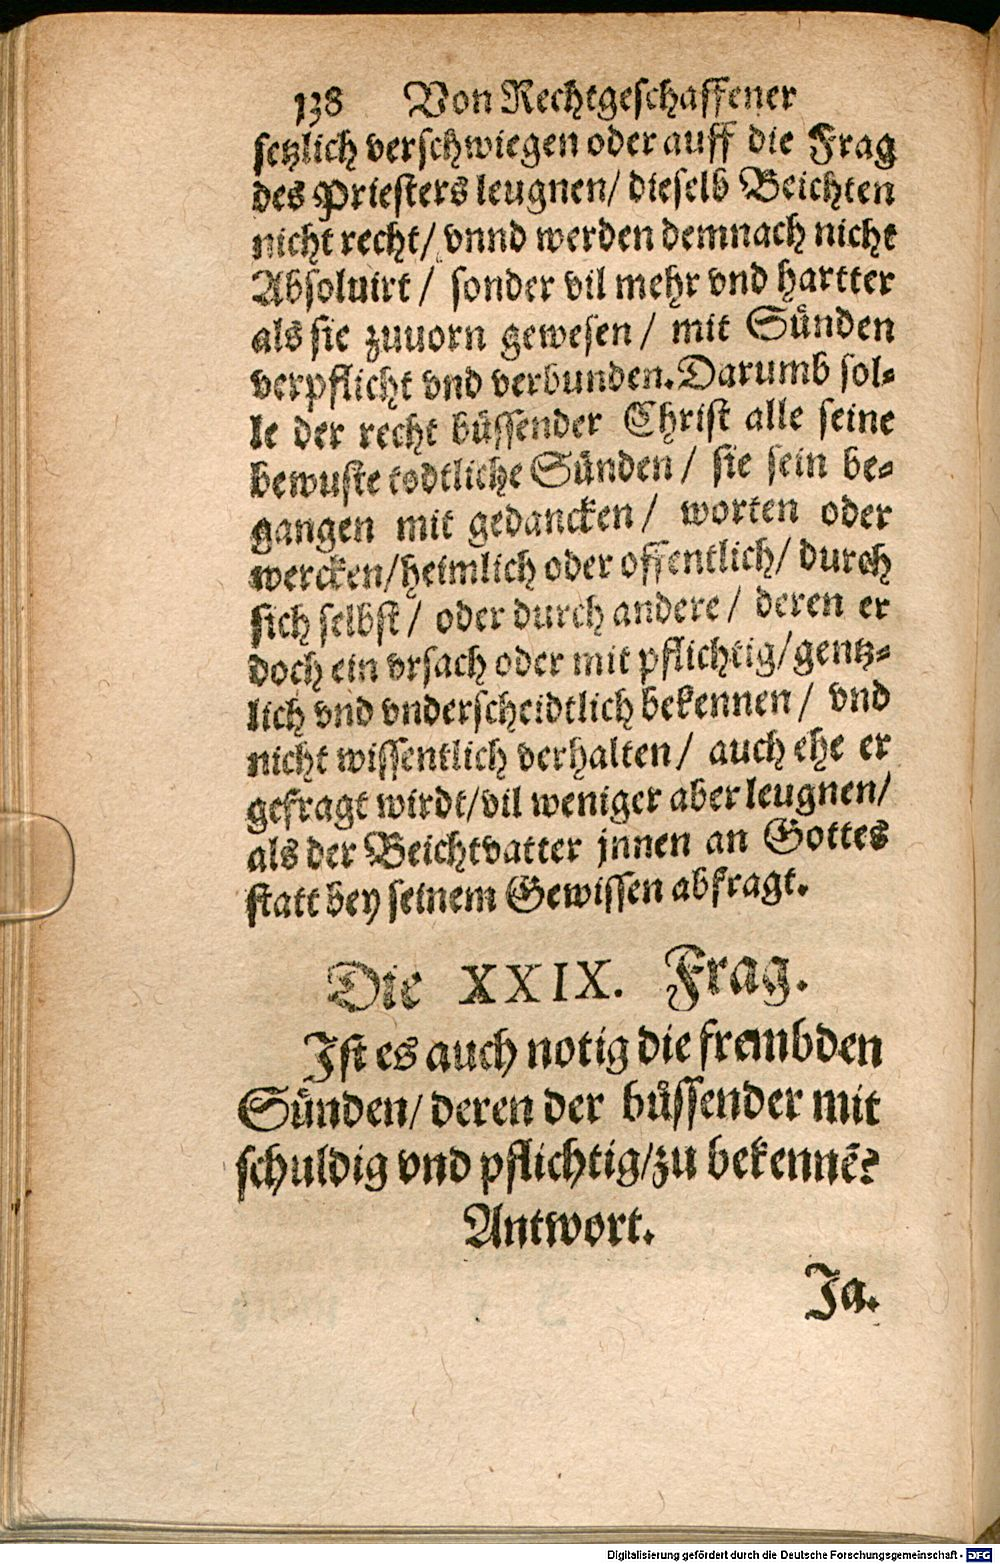 138 Von Rechtgeschaffener
setzlich verschwiegen oder auff die Frag
des Priesters leugnen/ dieselb Beichten
nicht recht/ vnnd werden demnach nicht
Absoluirt / sonder vil mehr vnd hartter
als sie zuuorn gewesen / mit Sünden
verpflicht vnd verbunden. Darumb sol-
le der recht büssender Christ alle seine
bewuste todtliche Sünden / sie sein be-
gangen mit gedancken / worten oder
wercken/heimlich oder offentlich/ durch
sich selbst / oder durch andere / deren er
doch ein vrsach oder mit pflichtig/gentz-
lich vnd vnderscheidtlich bekennen / vnd
nicht wissentlich verhalten / auch ehe er
gefragt wirdt/vil weniger aber leugnen/
als der Beichtvatter jnnen an Gottes
statt bey seinem Gewissen abfragt.
Die XXIX. Frag.
Ist es auch notig die frembden
Sünden/ deren der büssender mit
schuldig vnd pflichtig/zu bekennē?
Antwort.
Ja.
Digitalisierung gefördert durch die Deutsche Forschungsgemeinschaft - DFG